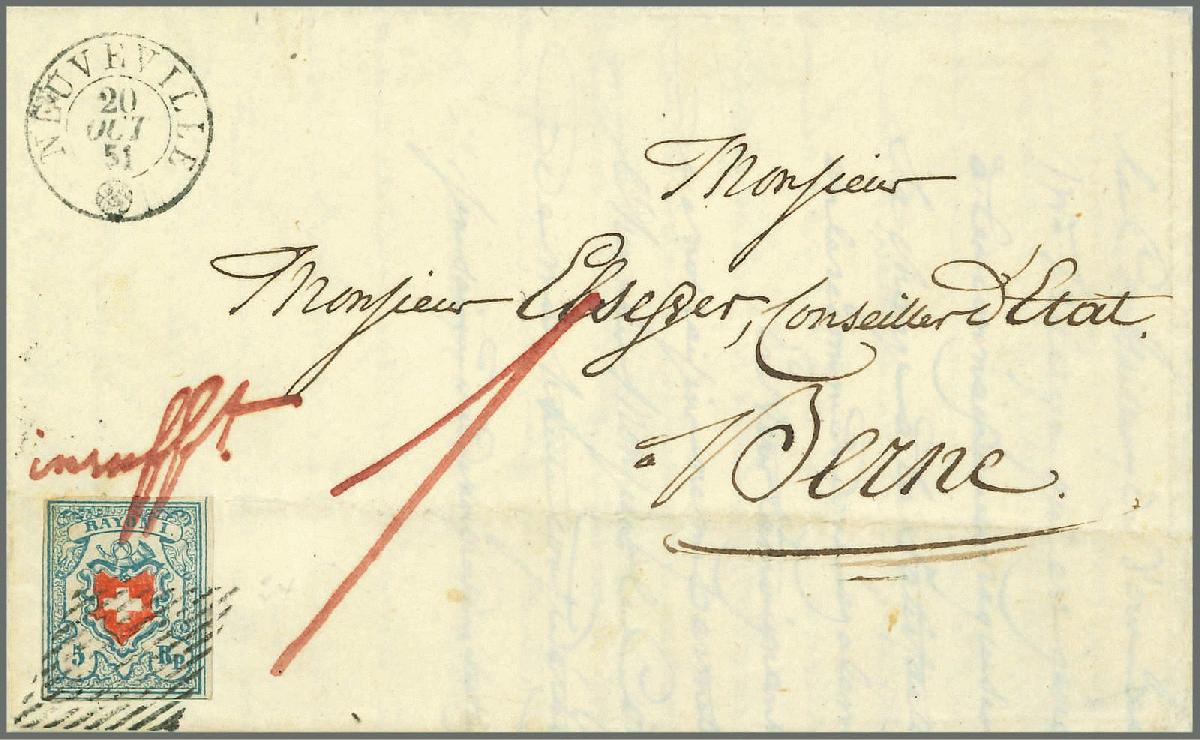 NEUVEVILLE
20
OCT
51
Monsieur
Monsieur Elsegger, Conseiller d'Etat.
à Berne.
insufft.
1
RAYON I.
5 Rp